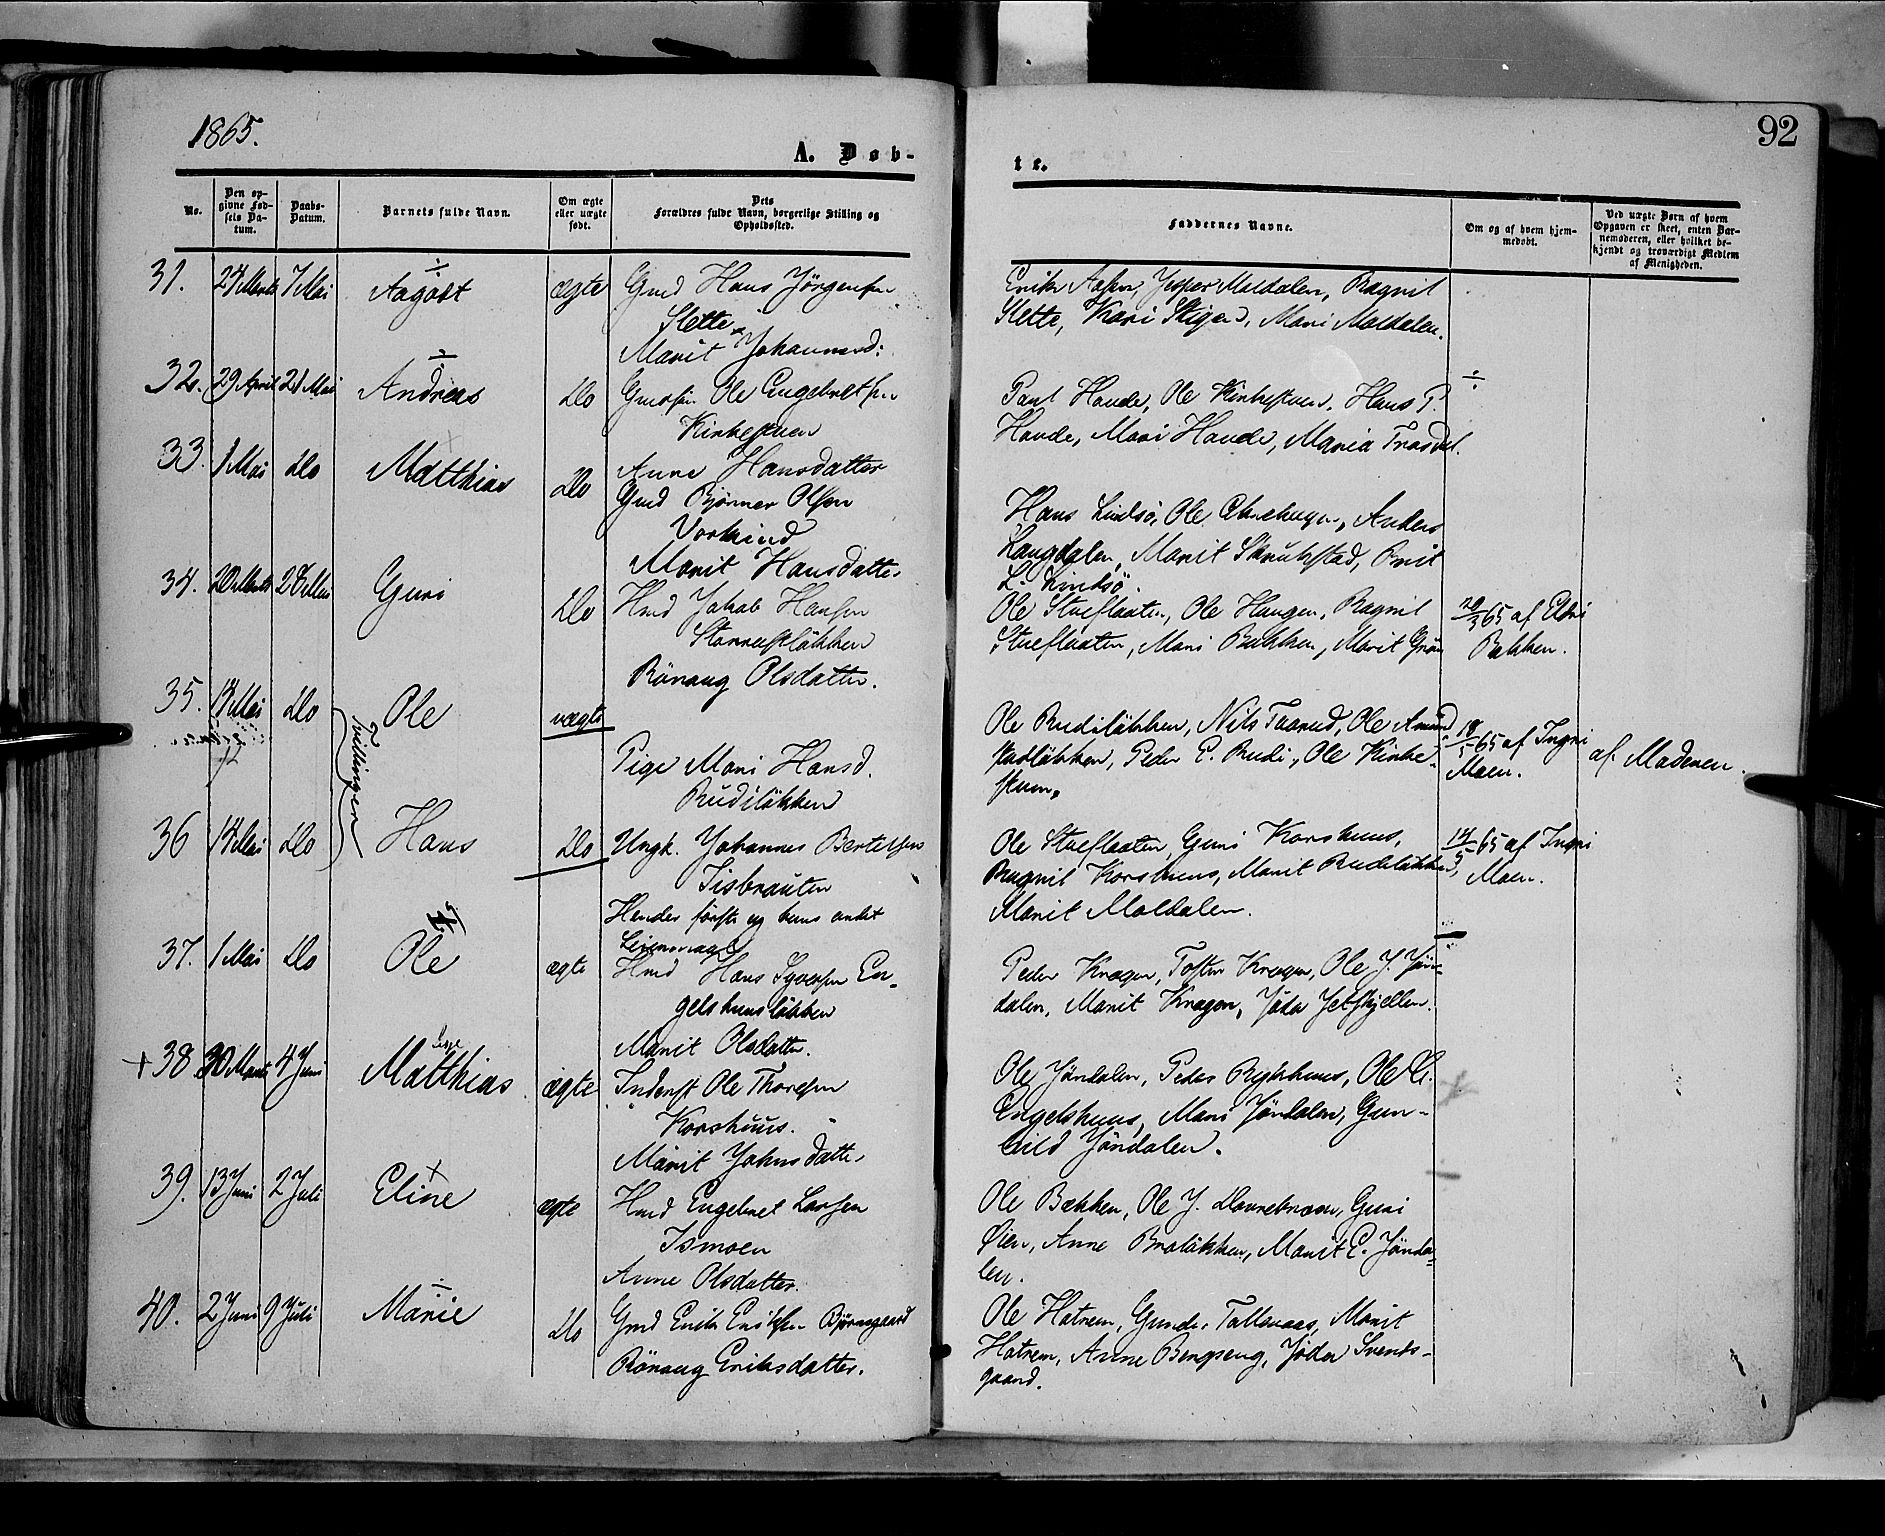 1865.
92
A. Døb-
te.
No.
Den opgivne Fødsels Datum.
Daabs-Datum.
Barnets fulde Navn.
Om ægte eller uægte født.
Dets Forældres fulde Navn, borgerlige Stilling og Opholdssted.
Faddernes Navne.
Om og af hvem hjemmedøbt.
Ved uægte Børn af hvem Opgaven er skeet, enten Barnemoderen, eller hvilket bekjendt og troværdigt Medlem af Menigheden.
31. 24 Marts 7 Mai Aagöst ægte Gmd Hans Jörgensen
Slette
Marit Johannesd:
Erik Aasen, Jesper Moldalen, Ragnil
Slette, Kari Stigen, Mari Moldalen.
32. 29 April 21 Mai Andreas Do Gmdsön Ole Engebretsen
Kirkestuen
Anne Hansdatter
Paul Haude, Ole Kirkestuen, Hans P.
Haude, Mari Haude, Maria Trosdal.
33. 1 Mai Do Matthias Do Gmd Björner Olsen
Vorkind
Marit Hansdatter
Hans Lindsö, Ole, Anders
Langdalen, Marit Skrukstad, Brit
L. Lindsö.
34. 20 Marts 28 Mai Guri Do Hmd Jakob Hansen
Rönaug Olsdatter.
Ole Stueflaaten, Ole Haugen, Ragnil
Stueflaaten, Mari Bakken, Marit Grön
20/3 65 af Eldri
Bakken.
35. 18 Mai Do Ole uægte
Tvillinger
Pige Mari Hansd.
Rudilökken
Ole Rudilökken, Nils Taarud, Ole
Peder P. Rudi, Ole Kirke-
stuen,
18/5 65 af Ingri
Moen.
af Moderen.
36 18 Mai Do Hans Do Ungk. Johannes Bertelsen
Tisbrauten
Hendes förste og hans andet
Leiermaal
Ole Stueflaaten, Guri Korshuus,
Ragnil Korshuus, Marit Rudilökken,
Marit Moldalen.
14/5 65 af Ingri
Moen.
37. 1 Mai Do Ole ægte Hmd Hans Syversen En-
gelshuuslökken
Marit Olsdatter.
Peder Kragen, Tosten Kragen, Ole J. Jön-
dalen, Marit Kragen, Jöda
+ 38 30 Marts 4 Juni Matthias ægte Inderst Ole Thoresen
Korshuus.
Marit Johnsdatter
Ole Jöndalen, Peder Rykhuus, Ole
Engelshuus, Mari Jöndalen, Gun-
hild Jöndalen.
39. 13 Juni 2 Juli Eline ægte Hmd Engebret Larsen
Ismoen
Anne Olsdatter.
Ole Bækken, Ole J. Guri
Öien, Anne Brolökken, Marit E. Jönda-
len.
40. 2 Juni 9 Juli Marie Do Gmd Erik Eriksen Björnsgaard
Rönaug Eriksdatter.
Ole Hatrem, Gunder Talleraas, Marit
Hatrem, Anne Bergseng, Jöda Svends-
gaard.